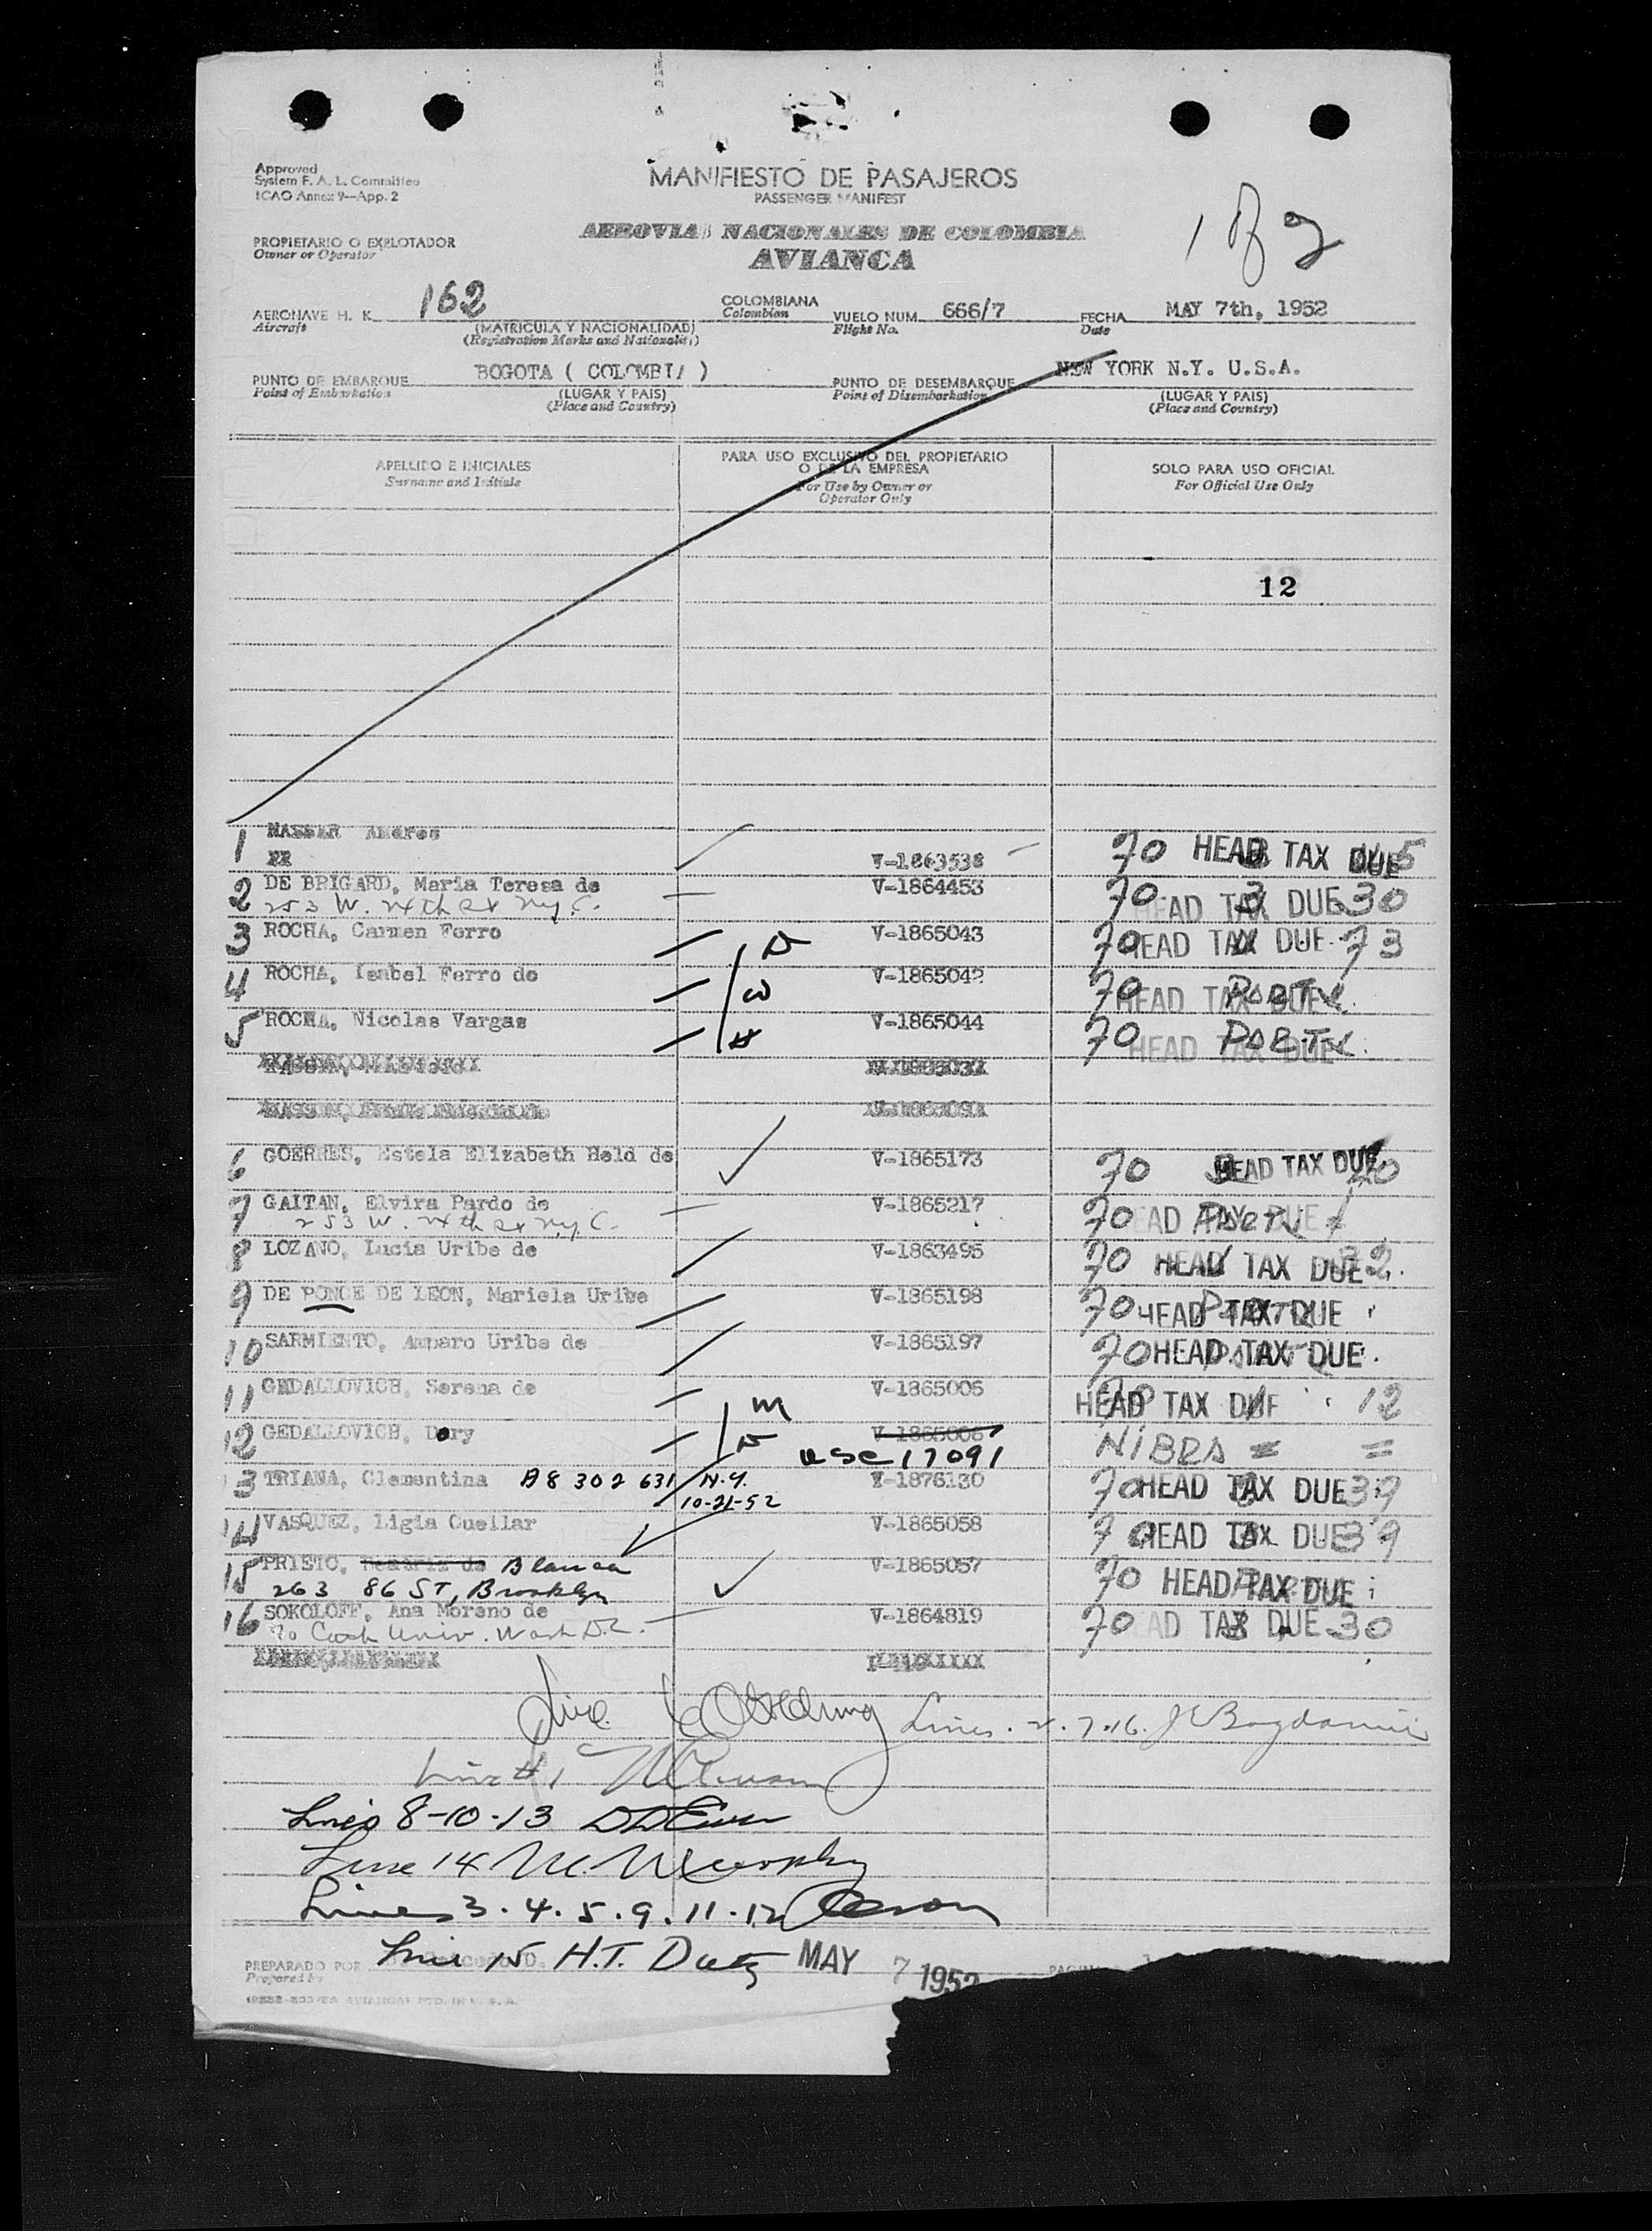 Approved
System F. A. L. Committee
ICAO Annex 9—App. 2
MANIFIESTO DE PASAJEROS
PASSENGER MANIFEST
1 of 2
PROPIETARIO O EXPLOTADOR
Owner or Operator
AEROVIAS NACIONALES DE COLOMBIA
AVIANCA
AERONAVE H. K. 162 COLOMBIANA VUELO NUM. 666/7 FECHA MAY 7th, 1952
Aircraft (MATRICULA Y NACIONALIDAD) Colombian Flight No. Date
(Registration Marks and Nationality)
PUNTO DE EMBARQUE BOGOTA ( COLOMBIA ) PUNTO DE DESEMBARQUE NEW YORK N.Y. U.S.A.
Point of Embarkation (LUGAR Y PAIS) Point of Disembarkation (LUGAR Y PAIS)
(Place and Country) (Place and Country)
APELLIDO E INICIALES PARA USO EXCLUSIVO DEL PROPIETARIO O DE LA EMPRESA SOLO PARA USO OFICIAL
Surname and Initials For Use by Owner or Operator Only For Official Use Only
12
1 NASSAR Andres V-1863538 70 HEAD TAX DUE
2 DE BRIGARD, Maria Teresa de V-1864453 70 3 HEAD TAX DUE 30
253 W. 74th St N.Y.C.
3 ROCHA, Carmen Ferro D V-1865043 70 HEAD TAX DUE 73
4 ROCHA, Isabel Ferro de W V-1865042 70 HEAD TAX DUE Party
5 ROCHA, Nicolas Vargas H V-1865044 70 HEAD TAX DUE Party
6 GOERRES, Estela Elizabeth Held de V-1865173 70 HEAD TAX DUE
7 GAITAN, Elvira Pardo de V-1865217 70 HEAD TAX DUE Party
253 W. 74th St N.Y.C.
8 LOZANO, Lucia Uribe de V-1863495 70 HEAD TAX DUE
9 DE PONCE DE LEON, Mariela Uribe V-1865198 70 HEAD TAX DUE
10 SARMIENTO, Amparo Uribe de V-1865197 70 HEAD TAX DUE
11 GEDALLOVICH, Serena de M V-1865005 70 HEAD TAX DUE 12
12 GEDALLOVICH, Dory D V-1865006 USC 17091 NIBRA = =
13 TRIANA, Clementina A8 302 631 N.Y. 10-21-52 V-1876130 70 HEAD TAX DUE 39
14 VASQUEZ, Ligia Cuellar V-1865058 70 HEAD TAX DUE 39
15 PRIETO, Blanca V-1865057 70 HEAD TAX DUE
263 86 ST, Brooklyn
16 SOKOLOFF, Ana Moreno de V-1864819 70 HEAD TAX DUE 30
c/o Cath Univ. Wash D.C.
Lines 2. 7. 16.
Line #1
Lines 8-10-13
Line 14 M. Murphy
Lines 3. 4. 5. 9. 11. 12
Line 15 H.T. MAY 7 1952
PREPARADO POR
Prepared by